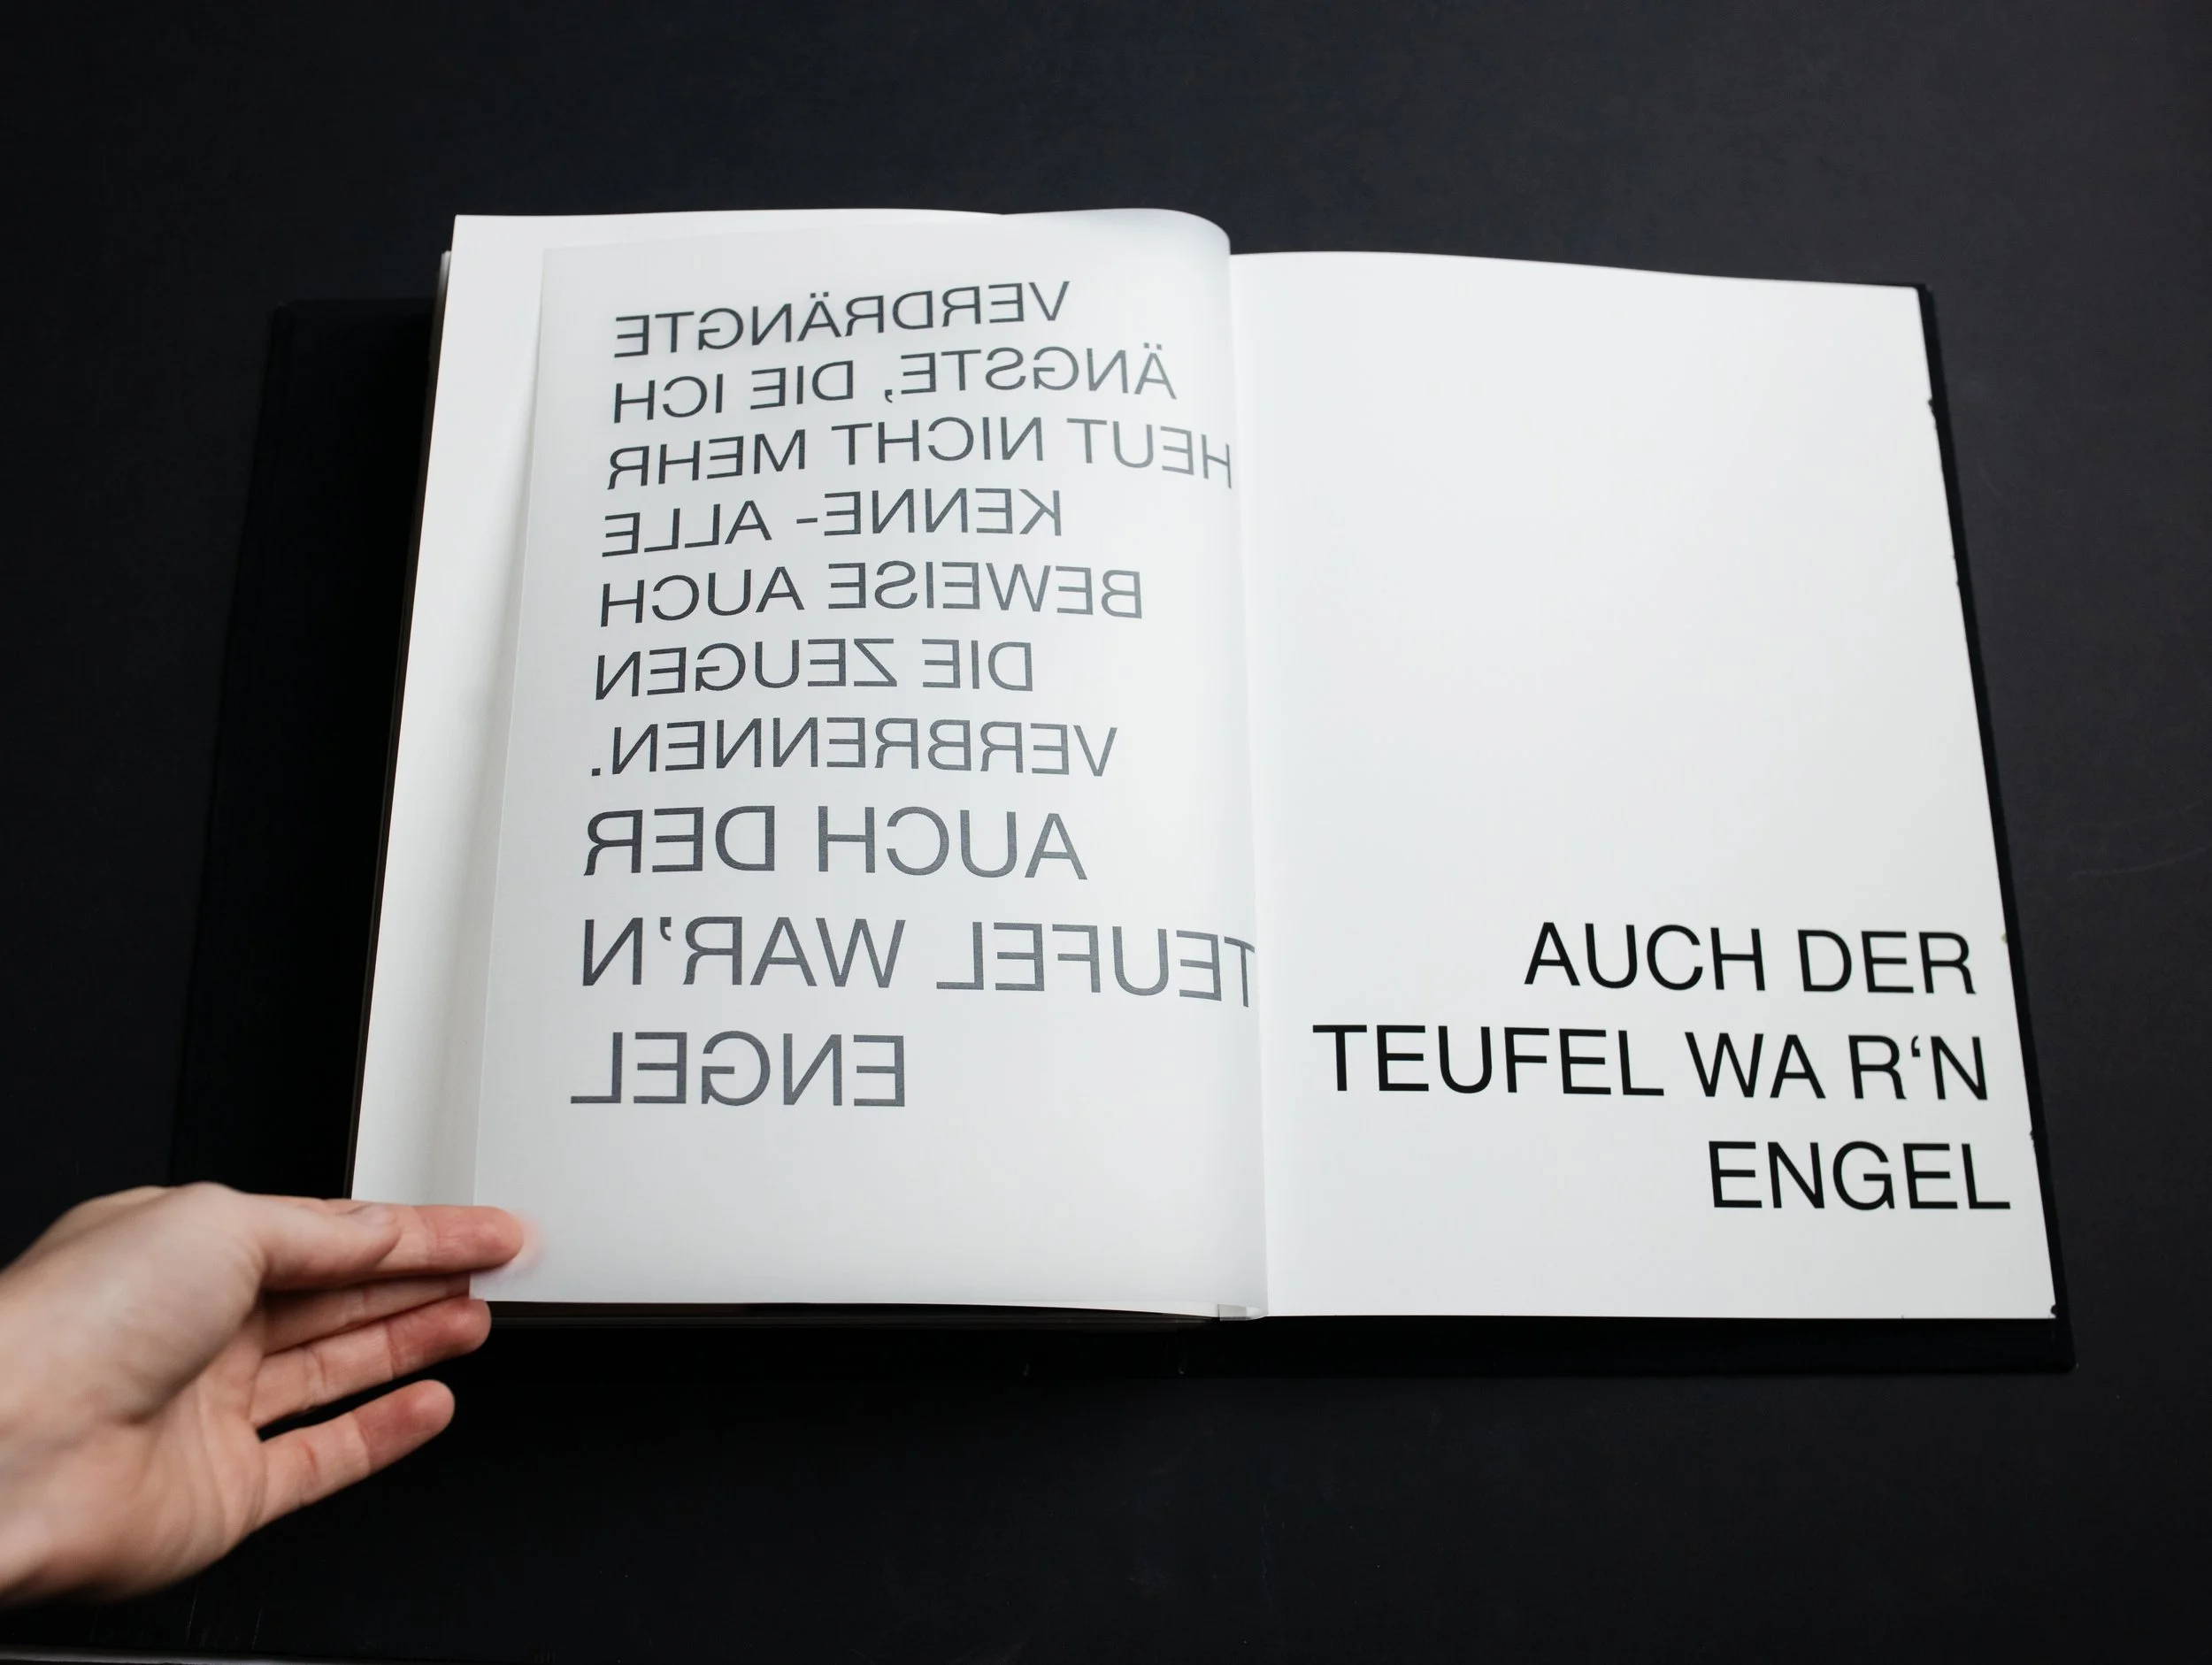 VERDRÄNGTE
ÄNGSTE, DIE ICH
HEUT NICHT MEHR
KENNE - ALLE
BEWEISE AUCH
DIE ZEUGEN
VERBRENNEN.
AUCH DER
TEUFEL WAR'N
ENGEL
AUCH DER
TEUFEL WA R‘N
ENGEL